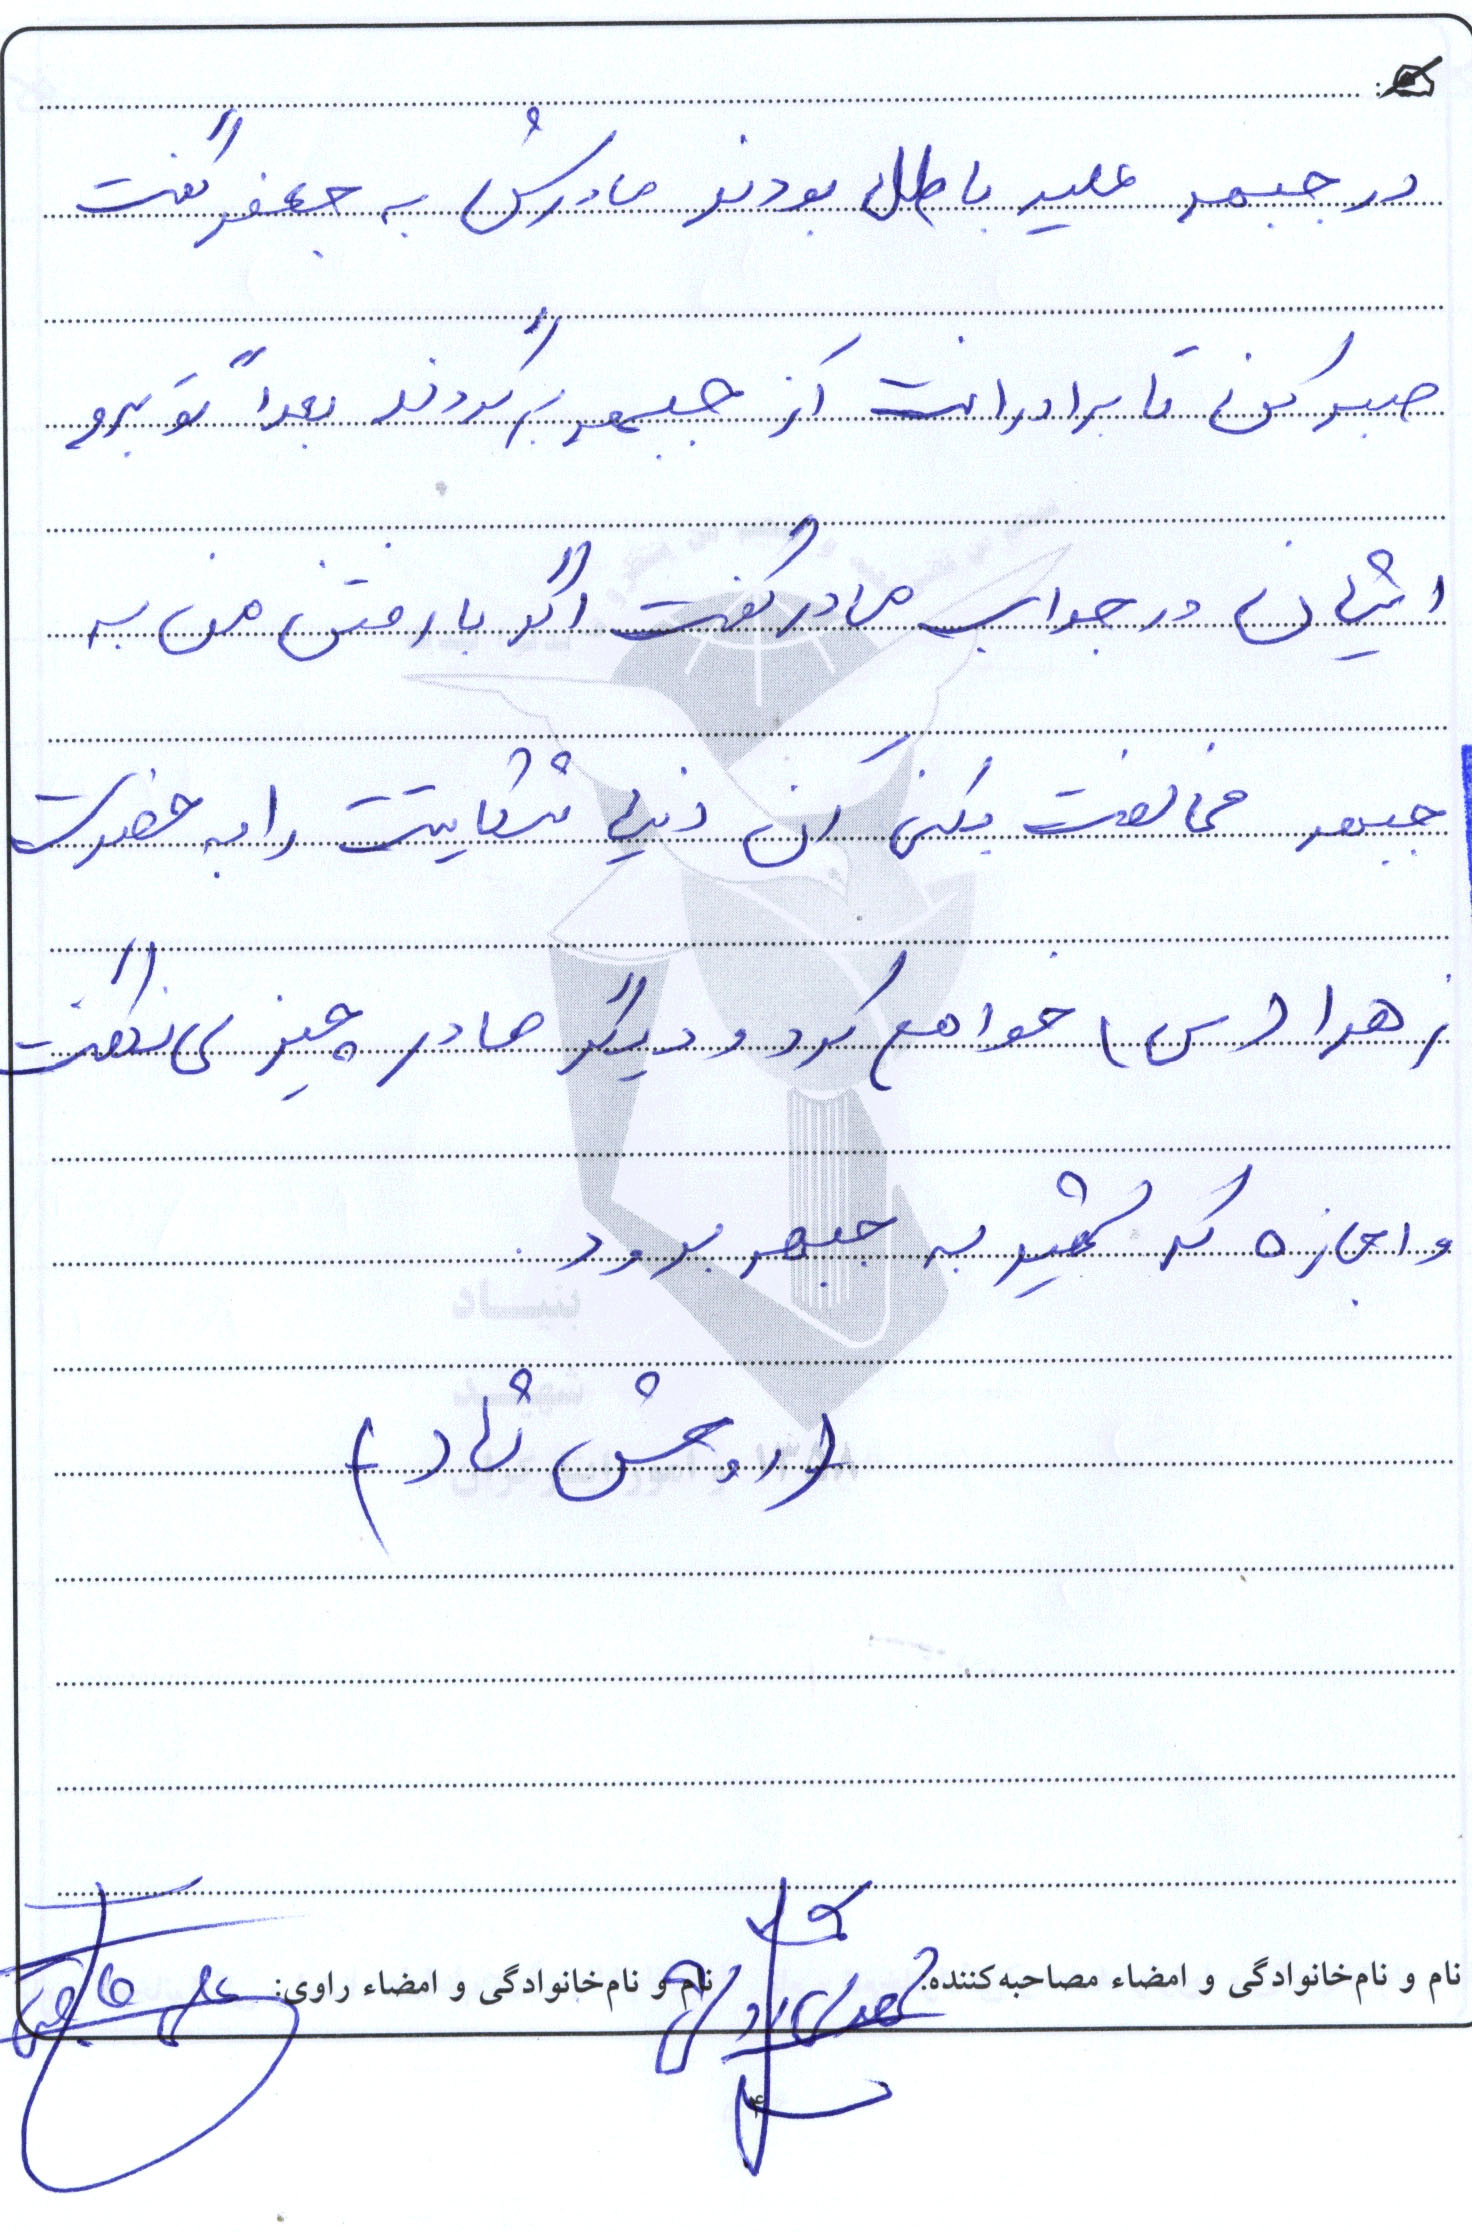 در جبهه علیه باطل بودند مادرش به جعفر گفت
صبر کن تا برادرانت از جبهه برگردند بعداً تو برو
ایشان در جواب مادر گفت اگر با رفتن من به
جبهه مخالفت بکنی آن دنیا شکایتت را به حضرت
زهرا (س) خواهم کرد و دیگر مادر چیزی نگفت
و اجازه که شهید به جبهه برود.
(روحش شاد)
بنیاد
شهید
نام و نام‌خانوادگی و امضاء مصاحبه‌کننده:
نام و نام‌خانوادگی و امضاء راوی: علی
۴